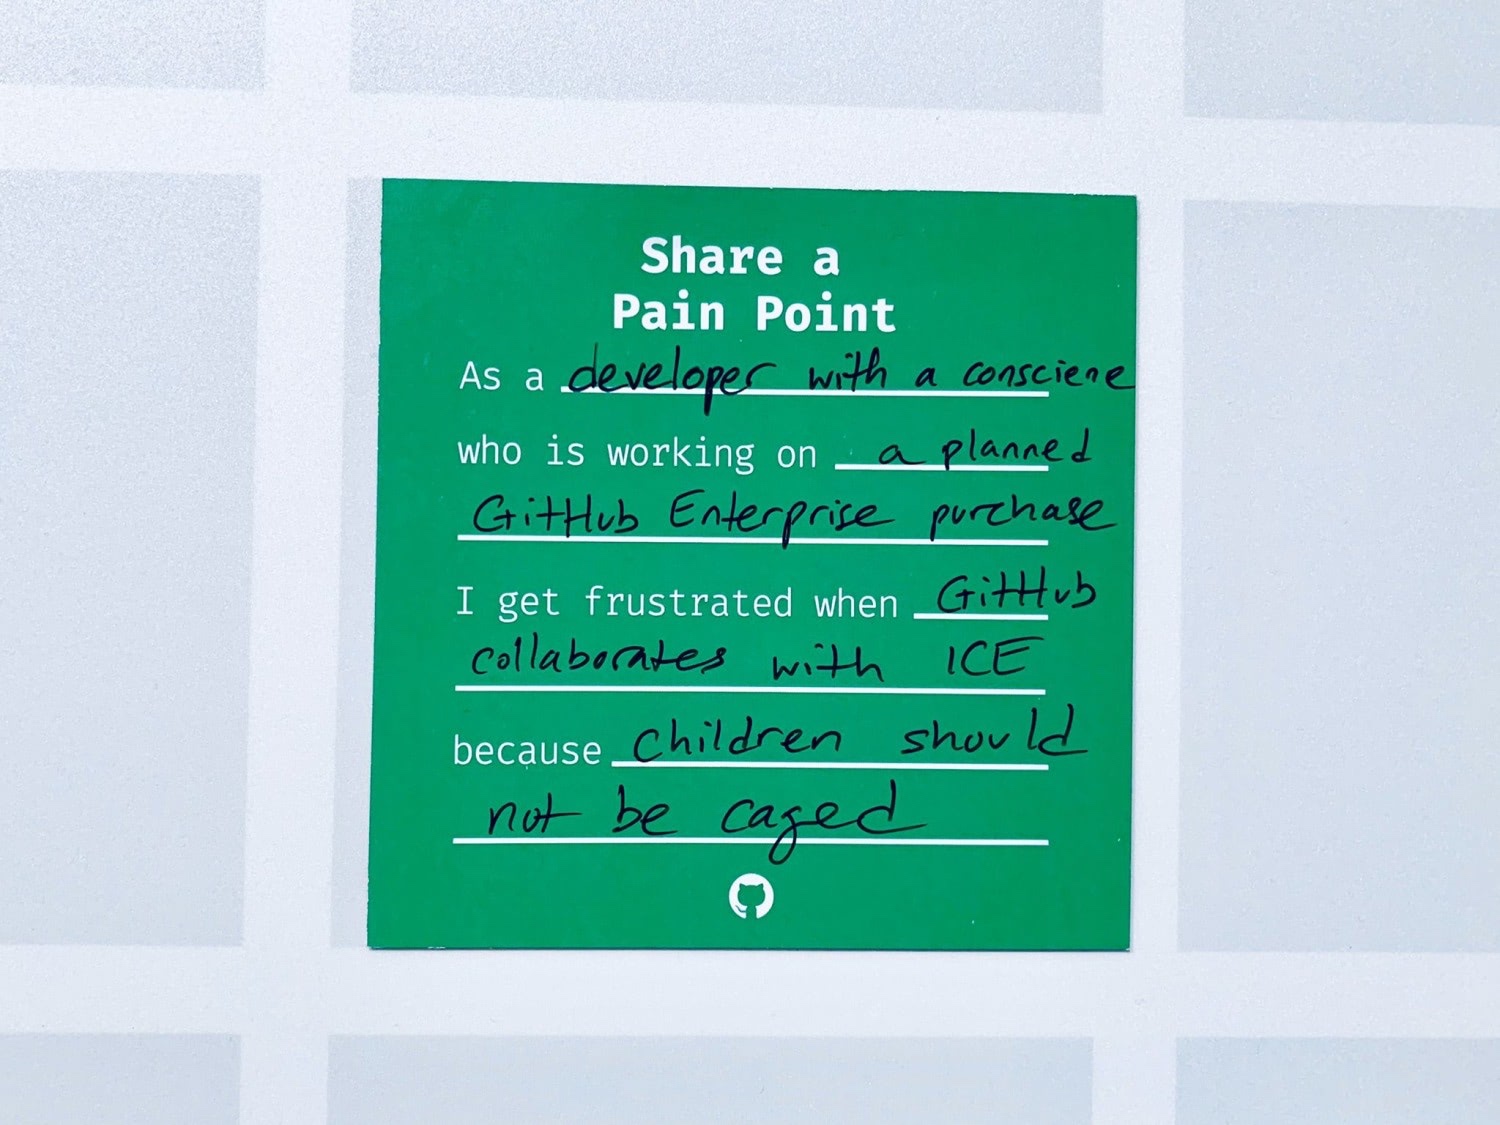 Share a
Pain Point
As a developer with a consciene
who is working on a planned
GitHub Enterprise purchase
I get frustrated when GitHub
collaborates with ICE
because children should
not be caged